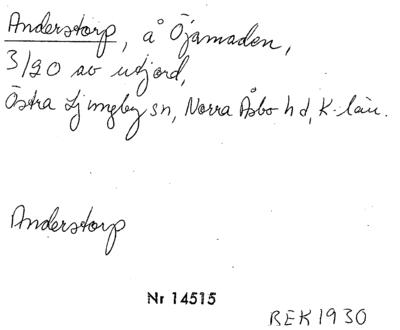 Anderstorp, å Öjamaden,
3/20 av utjord,
Östra Ljungby sn, Norra Åsbo hd, K-län.
Anderstorp
Nr 14515
REK 1930